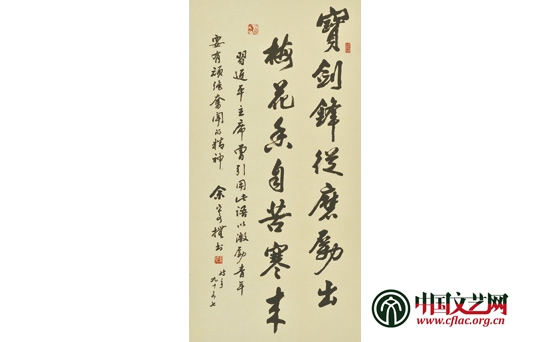 寶劍鋒從磨勵出
梅花香自苦寒來
習近平主席曾引用此語以激勵青年
要有頑強奮鬥的精神
余
書
時年九十又七
中国文艺网
www.cflac.org.cn